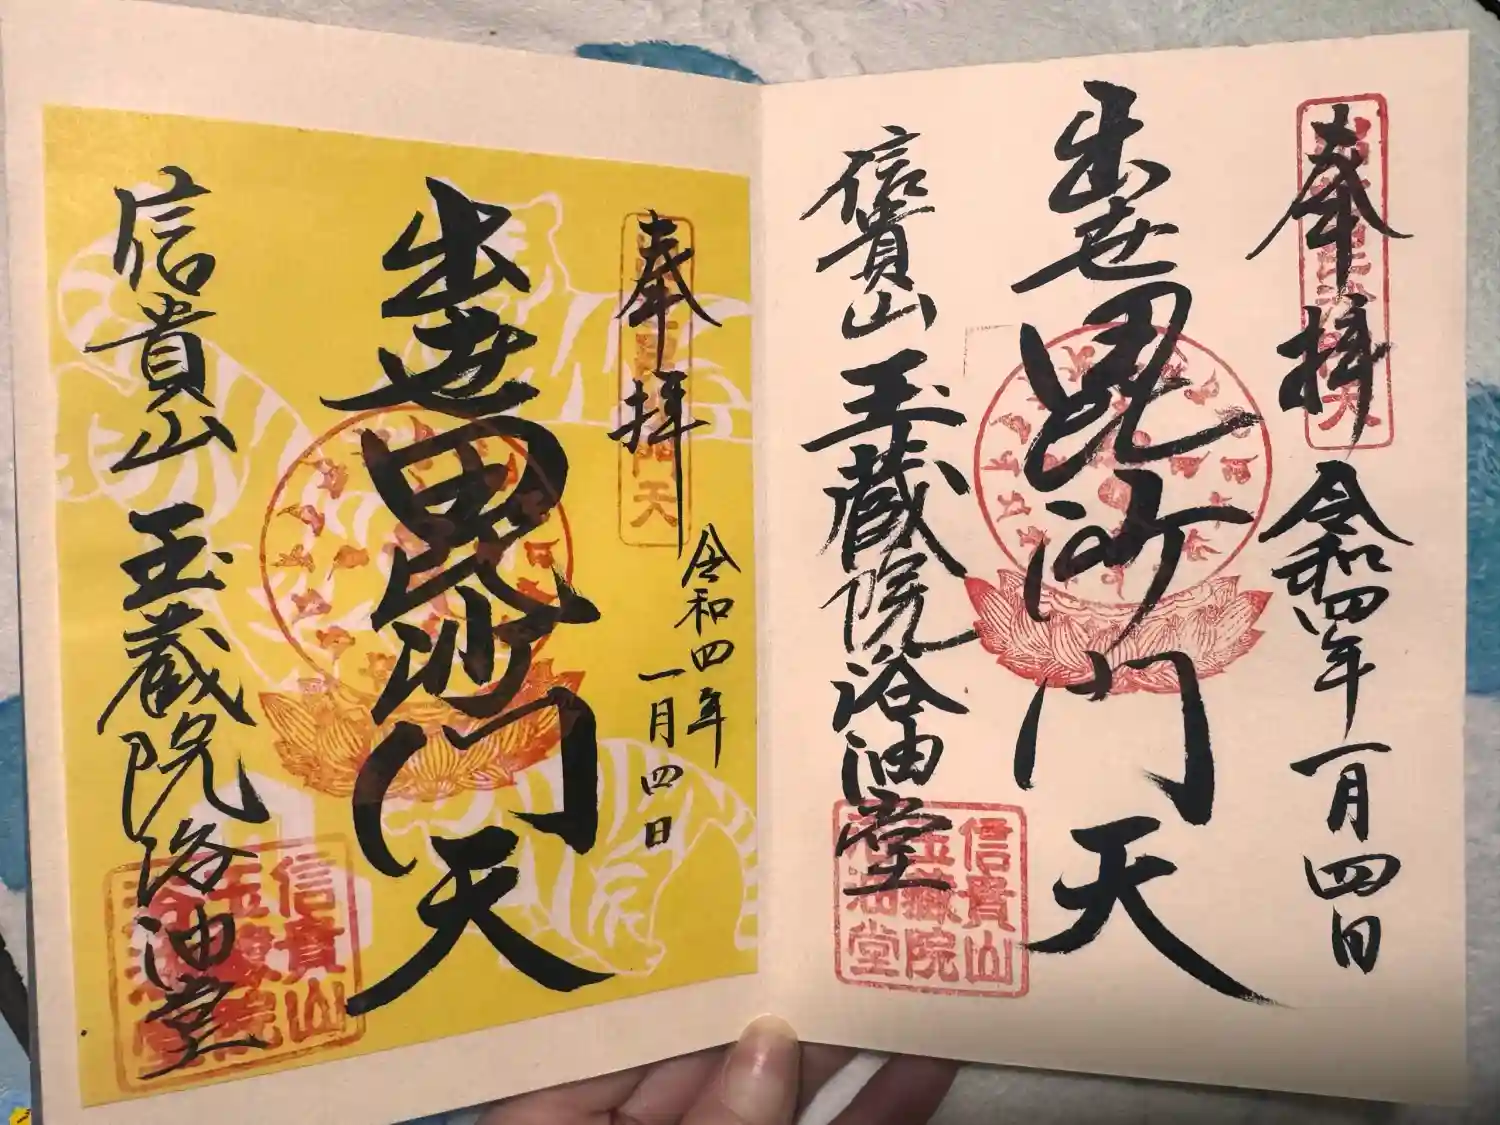 奉拝
令和四年一月四日
出世毘沙門天
信貴山玉蔵院浴油堂
信貴山
玉蔵院
浴油堂
奉拝
令和四年
一月四日
出世毘沙門天
信貴山玉蔵院浴油堂
信貴山
玉蔵院